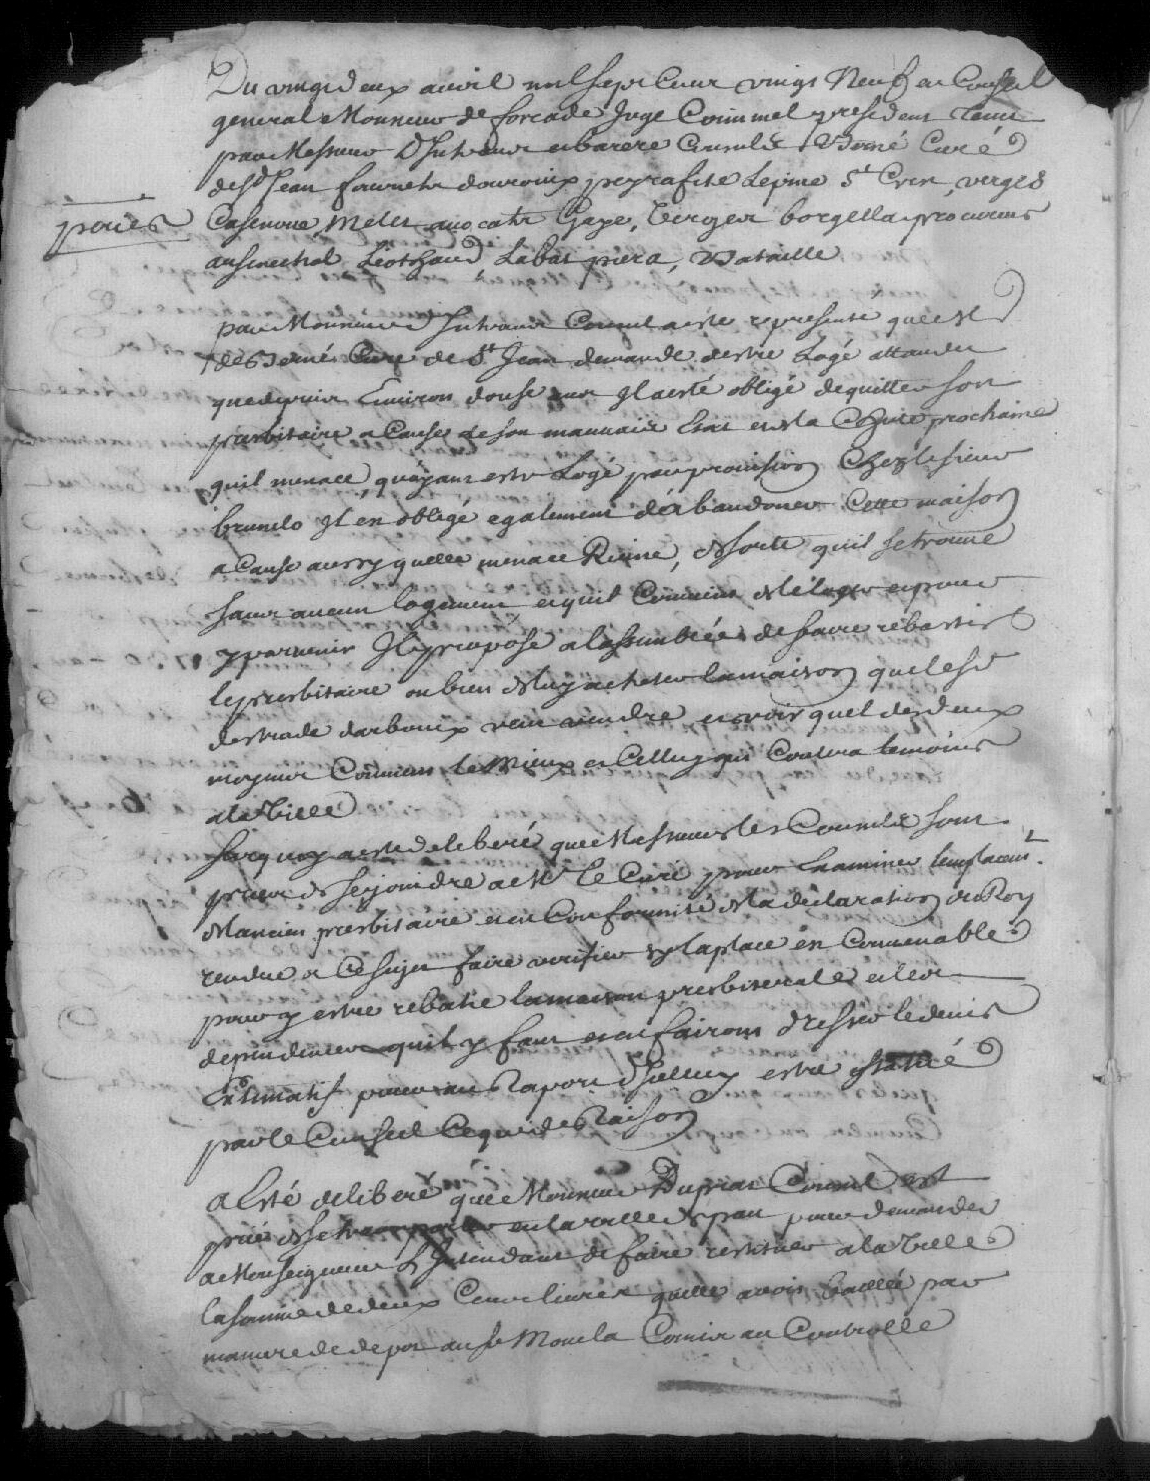 Du vingt deux avril mil sept cent vingt Neuf en Conseil
general Monsieur de forcade Juge Criminel president tenu
par Messieurs Dintrans et barere Consuls Berné Curé
de St Jean fournets douroux peyrafite Lepine St Cric, verges
Casenove Meles avocats Gaye, Verger borgella procureurs
au senechal Leothaud Labat piera, Bataille
peries
par Monsieur Dintrans Consul a este represente que M
de Berné Curé de St Jean demande destre Logé attandu
que depuis Environ douse ans Il a esté obligé de quitter son
presbitaire a Cause de son mauvais Etat et de la Chute prochaine
quil menace, quayant este Logé par provision Chez le sieur
brunelo Il est obligé egalement dabandoner Cette maison
a Cause aussy quelle menace Ruine, de sorte quil se trouve
sans aucun logement et quil Convient de le loger et pour
y parvenir Il propose a lassemblée de faire rebastir
le presbitaire ou bien de luy acheter la maison que le sr
destrade darbouix veut vendre et voir quel des deux
moyens Convient le Mieux et Celluy qui Coutera le moins
a la Ville
Sur quoy a este deliberé que Messieurs les Consuls sont
pries de se joindre a Mr Le Curé pour Examiner lemplacemt
de lancien presbitaire et en Conformité de la declaration du Roy
rendue a Ce sujet faire verifier sy la place est Convenable
pour y estre rebatie la maison presbiterale et les
dependences quil y faut et en fairont dresser le devis
Estimatif pour au Raport dicelluy estre statué
par le Conseil Ce que de Raison
a Esté deliberé que Monsieur Duprat Consul est
prié de se transporter en la ville de pau pour demander
a Monseigneur LIntendant de faire restituer a la Ville
la somme de deux Cens livres quelle avoit baillée par
maniere de depot au sr Moncla Comis au Controlle